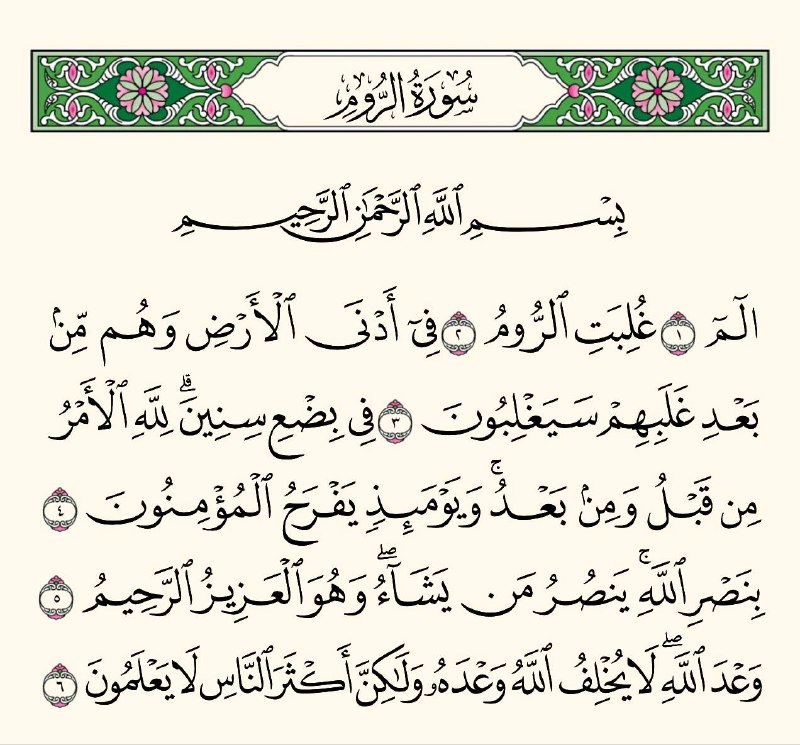 سُورَةُ الرُّومِ
بِسْمِ ٱللَّهِ ٱلرَّحْمَٰنِ ٱلرَّحِيمِ
الٓمٓ ١ غُلِبَتِ ٱلرُّومُ ٢ فِىٓ أَدْنَى ٱلْأَرْضِ وَهُم مِّنۢ
بَعْدِ غَلَبِهِمْ سَيَغْلِبُونَ ٣ فِى بِضْعِ سِنِينَ ۗ لِلَّهِ ٱلْأَمْرُ
مِن قَبْلُ وَمِنۢ بَعْدُ ۚ وَيَوْمَئِذٍ يَفْرَحُ ٱلْمُؤْمِنُونَ ٤
بِنَصْرِ ٱللَّهِ ۚ يَنصُرُ مَن يَشَآءُ ۖ وَهُوَ ٱلْعَزِيزُ ٱلرَّحِيمُ ٥
وَعْدَ ٱللَّهِ ۖ لَا يُخْلِفُ ٱللَّهُ وَعْدَهُۥ وَلَٰكِنَّ أَكْثَرَ ٱلنَّاسِ لَا يَعْلَمُونَ ٦